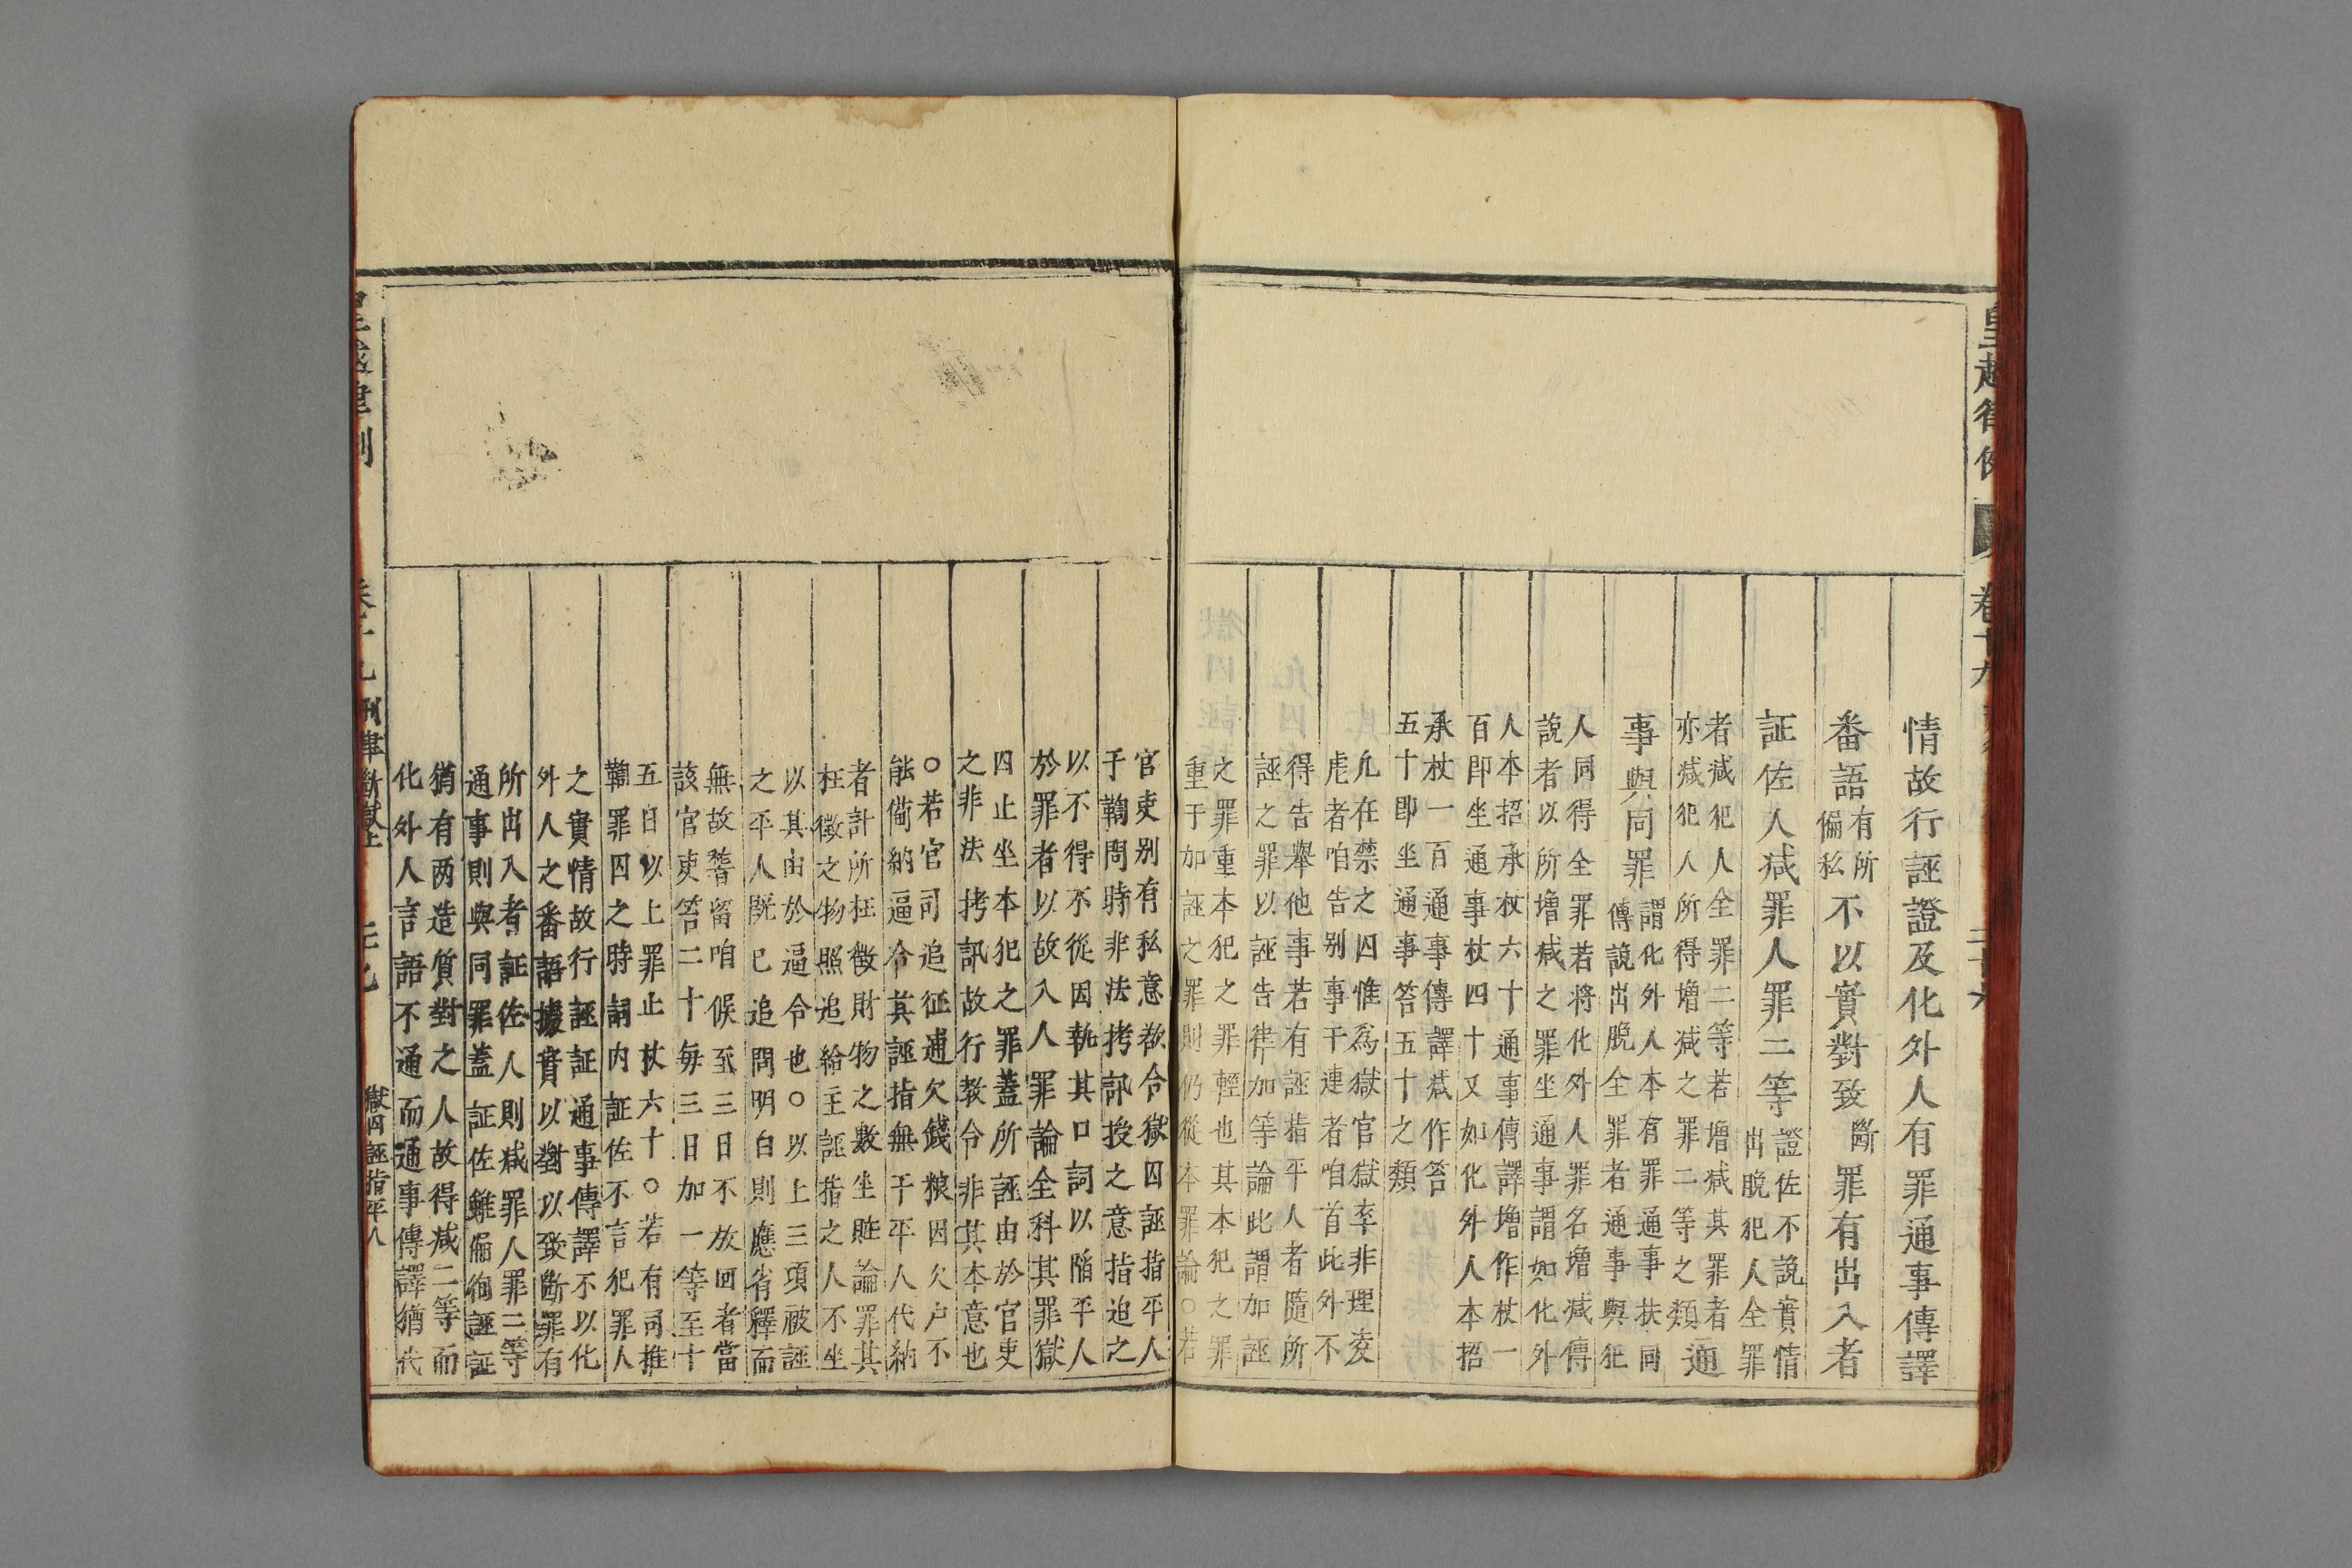 皇越律例
卷十九
情故行誣證及化外人有罪通事傳譯
番語有所偏私不以實對致斷罪有出入者
証佐人減罪人罪二等證佐不說實情出脫犯人全罪
者減犯人全罪二等若增減其罪者
亦減犯人所得增減之罪二等之類通
事與同罪謂化外人本有罪通事扶同傳說出脫全罪者通事與犯
人同得全罪若將化外人罪名增減傳
說者以所增減之罪坐通事謂如化外
人本招承杖六十通事傳譯增作杖一
百即坐通事杖四十又如化外人本招
承杖一百通事傳譯減作笞
五十即坐通事笞五十之類
凡在禁之囚惟為獄官獄卒非理凌
虐者咱告别事干連者咱首此外不
得告舉他事若有誣指平人者隨所
誣之罪以誣告律加等論此謂加誣
之罪重本犯之罪輕也其本犯之罪
重于加誣之罪則仍從本罪論○若
官吏别有私意欲令獄囚誣指平人
于鞫問時非法拷訊授之意指迫之
以不得不從因執其口詞以陷平人
於罪者以故入人罪論全科其罪獄
囚止坐本犯之罪蓋所誣由於官吏
之非法拷訊故行教令非其本意也
○若官司追征逋欠錢粮因欠户不
能備納逼令其誣指無干平人代納
者計所枉徵財物之數坐贓論罪其
枉徵之物照追給主誣指之人不坐
以其由於逼令也○以上三項被誣
之平人既已追問明白則應省釋而
無故稽留咱候至三日不放回者當
該官吏笞二十每三日加一等至十
五日以上罪止杖六十○若有司推
鞫罪囚之時詞内証佐不言犯罪人
之實情故行誣証通事傳譯不以化
外人之番語據實以對以致斷罪有
所出入者証佐人則減罪人罪二等
通事則與同罪蓋証佐雖偏徇誣証
猶有两造質對之人故得減二等而
化外人言語不通而通事傳譯猶代
刑律斷獄上
獄囚誣指平人